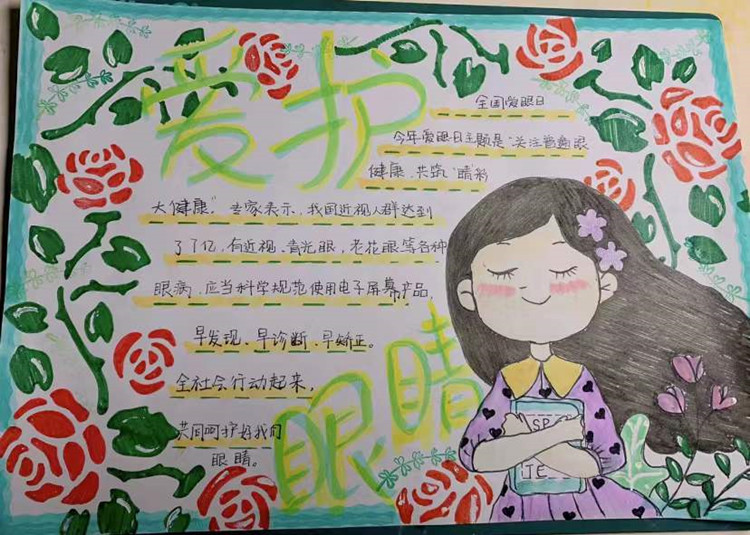 爱护
全国爱眼日
今年爱眼日主题是"关注普遍眼
健康,共筑"睛"彩
大健康"专家表示,我国近视人群达到
了7亿,有近视、青光眼,老花眼等各种
眼病,应当科学规范使用电子屏幕产品,
早发现、早诊断、早矫正。
全社会行动起来,
共同呵护好我们
眼睛。
眼睛